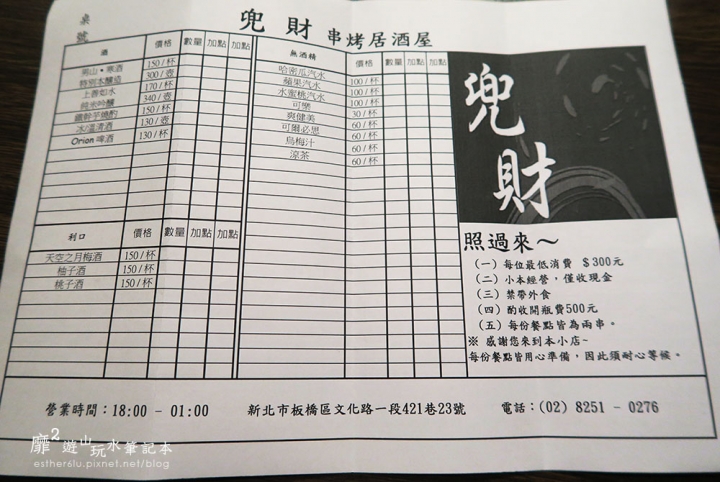 桌號
兜財 串烤居酒屋
酒 價格 數量 加點 加點
150/杯
特別本釀造 300/壺
上善如水 170/杯
純米吟釀 340/壺
150/杯
冰/溫清酒 130/壺
Orion 啤酒 130/杯
利口 價格 數量 加點 加點
天空之月梅酒 150/杯
柚子酒 150/杯
桃子酒 150/杯
無酒精 價格 數量 加點 加點
哈密瓜汽水 100/杯
蘋果汽水 100/杯
水蜜桃汽水 100/杯
可樂 30/杯
爽健美 60/杯
可爾必思 60/杯
烏梅汁 60/杯
涼茶 60/杯
兜財
照過來～
(一) 每位最低消費 $300元
(二) 小本經營，僅收現金
(三) 禁帶外食
(四) 酌收開瓶費500元
(五) 每份餐點皆為兩串。
※ 感謝您來到本小店~
每份餐點皆用心準備，因此須耐心等候。
營業時間：18:00 - 01:00 新北市板橋區文化路一段421巷23號 電話：(02) 8251 - 0276
靡2遊山玩水筆記本
esther6lu.pixnet.net/blog